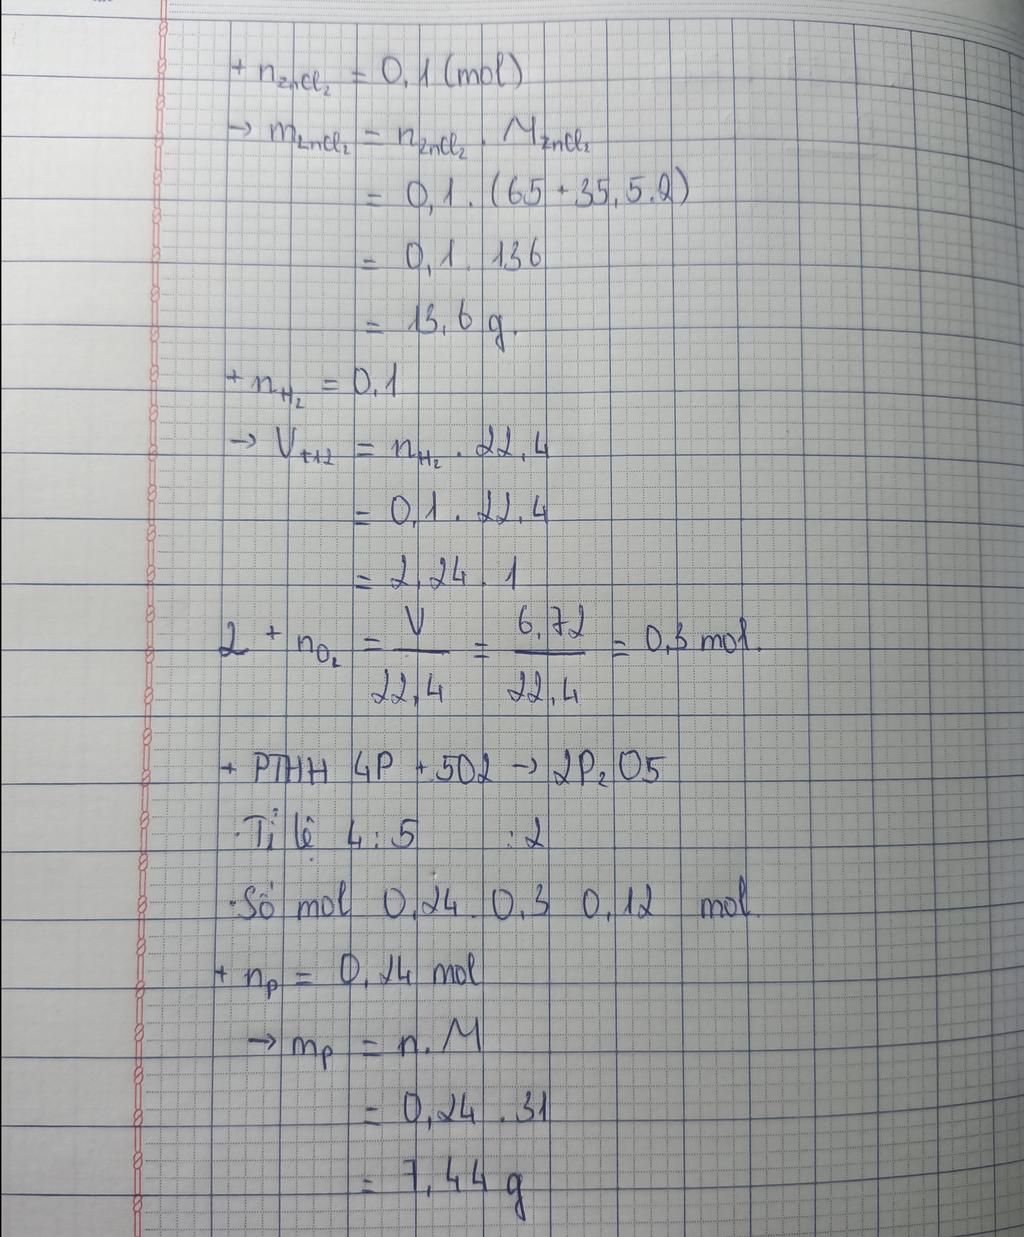 + nZnCl₂ = 0,1 (mol)
→ mZnCl₂ = nZnCl₂ . MZnCl₂
= 0,1 . (65 + 35,5.2)
= 0,1 . 136
= 13,6 g.
+ nH₂ = 0,1
→ VH2 = nH₂ . 22,4
= 0,1 . 22,4
= 2,24 . 1
2 + nO₂ = V/22,4 = 6,72/22,4 = 0,3 mol.
+ PTHH 4P + 5O2 → 2P₂O5
. Tỉ lệ 4 : 5 : 2
. Số mol 0,24 0,3 0,12 mol.
+ nP = 0,24 mol
→ mP = n.M
= 0,24 . 31
= 7,44 g